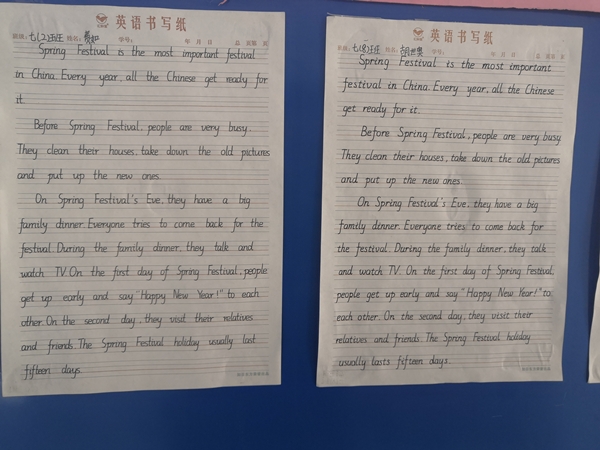 英语书写纸
班级：七(2)班 姓名： 学号： 年 月 日
Spring Festival is the most important festival
in China. Every year, all the Chinese get ready for
it.
Before Spring Festival, people are very busy.
They clean their houses, take down the old pictures
and put up the new ones.
On Spring Festival's Eve, they have a big
family dinner. Everyone tries to come back for the
festival. During the family dinner, they talk and
watch TV. On the first day of Spring Festival, people
get up early and say "Happy New Year!" to each
other. On the second day, they visit their relatives
and friends. The Spring Festival holiday usually last
fifteen days.
英语书写纸
班级：七(8)班 姓名：胡世奥 学号： 年 月 日
Spring Festival is the most important
festival in China. Every year, all the Chinese
get ready for it.
Before Spring Festival, people are very busy.
They clean their houses, take down the old pictures
and put up the new ones.
On Spring Festival's Eve, they have a big
family dinner. Everyone tries to come back for
the festival. During the family dinner, they talk
and watch TV. On the first day of Spring Festival,
people get up early and say "Happy New Year!" to
each other. On the second day, they visit their
relatives and friends. The Spring Festival holiday
usually lasts fifteen days.